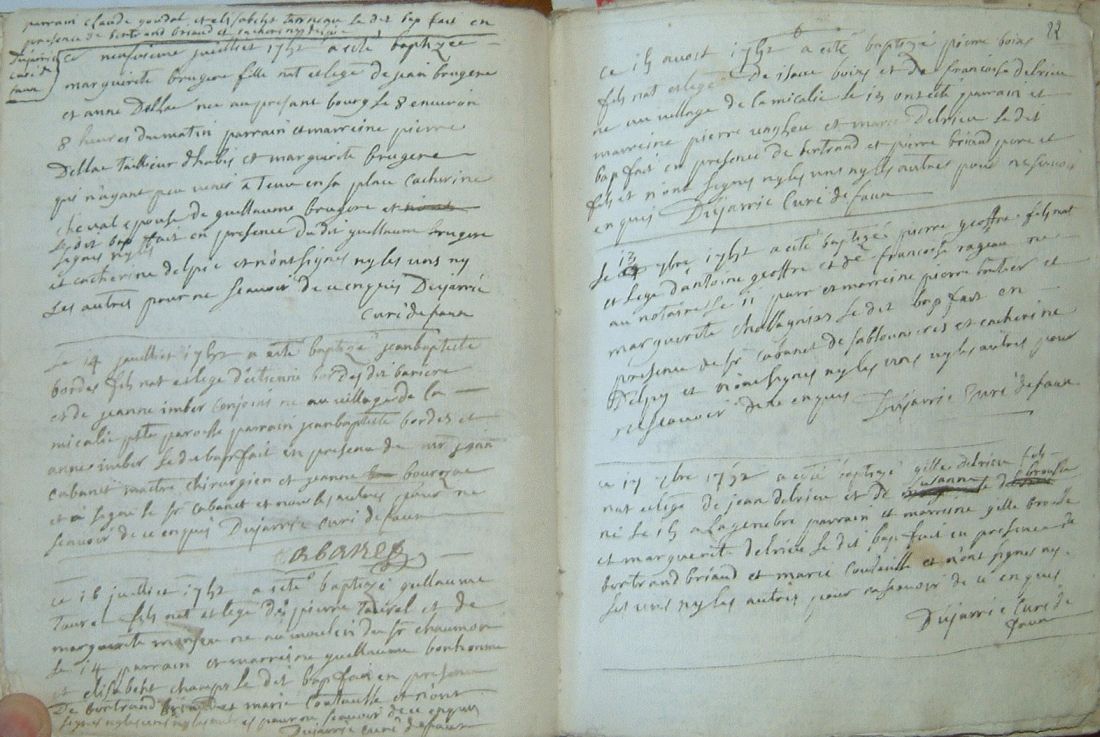 parrain claude goudal et elisabeht le dit bap fait en
presence de bertrand briaud et
Dujarric
curé de
faux
ce neufvieme juilliet 1752 a esté baptizée
marguerite brugere fille nat et lege de jean brugere
et anne Dellac nee au presant bourg le 8 environ
8 heures du matin parrain et marreine pierre
Dellac tailleur d'habis et marguerite brugere
qui n'ayant peu venir a tenu en sa place catherine
cheval epouse de guillaume brugere et
le dit bap fait en presence du dit guillaume brugere
signes ny les
et catherine delpic et n'ont signes ny les uns ny
les autres pour ne scavoir de ce enquis Dujarric
Curé de faux
Le 14 juilliet 1752 a esté baptizé jeanbaptiste
bordes fils nat et lege d'étienne bordes dit bariere
et de jeanne imber conjoins ne au village de la
micalie pnte paroisse parrain jeanbaptiste bordes et
anne imber le dit bap fait en presence de mr jean
cabanet maitre chirurgien et jeanne bourgne
et a signé le sr cabanet et non les autres pour ne
scavoir de ce enquis Dujarric curé de faux
Cabanet
ce 16 juilliet 1752 a esté baptizé guillaume
taurel fils nat et lege de pierre taurel et de
marguerite ne au moulin du sr chaumon
le 14 parrain et marreine guillaume bonhomme
et elisabeht champs le dit bap fait en presence
De bertrand briaud et marie coutausse et n'ont
signes ny les uns ny les autres pour ne scavoir de ce enquis
Dujarric curé de faux
22
ce 15 avost 1752 a esté baptizé pierre boins
fils nat et lege de isaac boins et de francoise delrieu
ne au village de la micalie le 13 ont esté parrain et
marreine pierre et marie Delrieu le dit
bap fait en presence de bertrand et pierre briaud pere et
fils et n'ont signes ny les uns ny les autres pour ne scavoir
enquis Dujarric Curé de faux
Le 13 7bre 1752 a esté baptizé pierre geoffre fils nat
et lege d'antoine geoffre et de francoise rageau ne
au notaire le 11 parr et marreine pierre boutier et
marguerite le dit bap fait en
presence de sr cabanet de sablounieres et catherine
Delpy et n'ont signes ny les uns ny les autres pour
ne scavoir de ce enquis Dujarric Curé de faux
ce 17 7bre 1752 a esté baptizé gille delrieu fils
nat et lege de jean delrieu et de suzanne la brousse
né le 15 a la genebre parrain et marreine gille brousse
et marguerite delrieu le dit bap fait en presence de
bertrand briaud et marie coutausse et n'ont signes ny
les uns ny les autres pour ne scavoir de ce enquis
Dujarric Curé de
faux